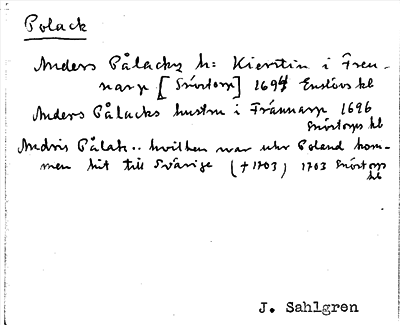 Polack
Anders Pålacks h: Kierstin i Fren-
narp [Snöstorp] 1694 Enslövs kl
Anders Pålacks hustru i Frännarp 1696
Snöstorps kl
Andris Pålak.. hvilken war uhr Polend kom-
men hit till Swärige (+1703) 1703 Snöstorps
kb
J. Sahlgren